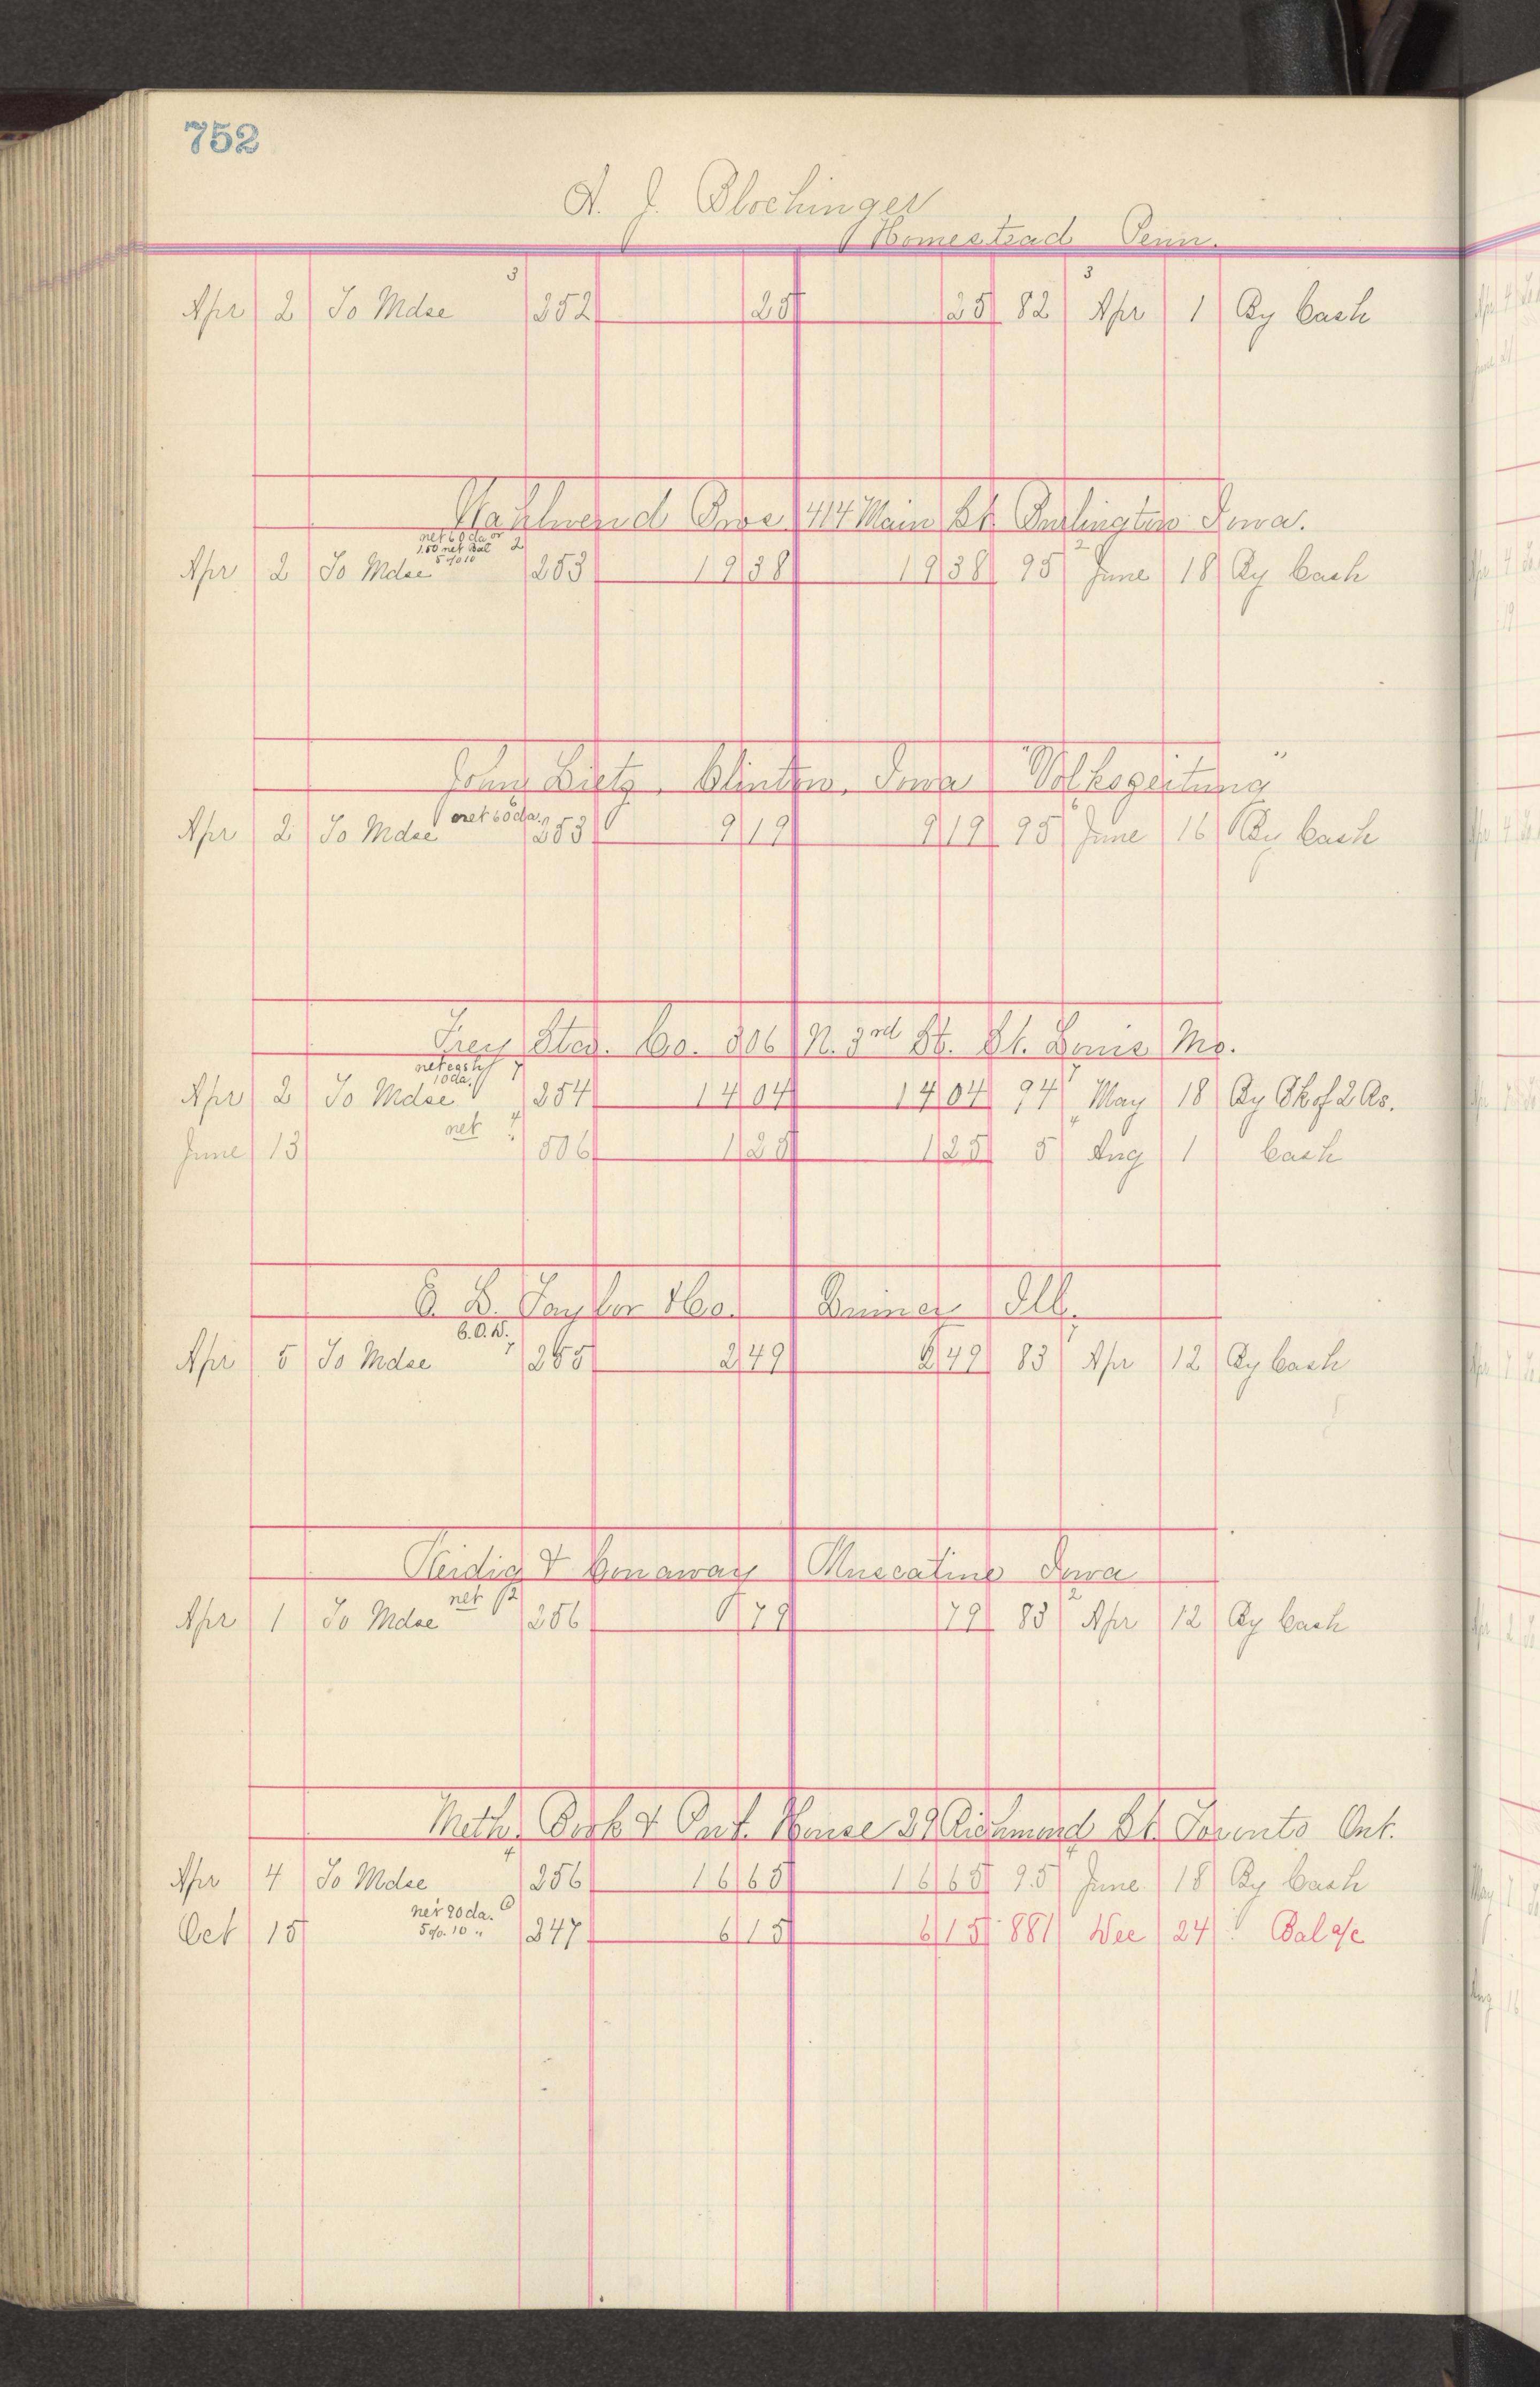 752
A. J. Blochinger
Homestead Penn.
3 3
Apr 2 To Mdse 252 25 25 82 Apr 1 By Cash
Wahlmend Bros 414 Main St. Burlington Iowa.
net 60 da or
1.50 net Bal 2
5 % 10
Apr 2 To Mdse 253 19 38 19 38 95 2 June 18 By Cash
John Dietz, Clinton, Iowa "Volkszeitung"
net 60 da. 6
Apr 2 To Mdse 253 9 19 9 19 95 June 16 By Cash
Frey Stad. Co. 806 N. 3rd St. St. Louis Mo.
net cash 7
10 da. 7
Apr 2 To Mdse 254 14 04 14 04 94 May 18 By Ck of 2 As.
net 4 4
June 13 506 1 25 1 25 5 Aug 1 Cash
E. B. Taylor & Co. Ill.
C.O.D. 7 7
Apr 5 To Mdse 255 2 49 2 49 83 Apr 12 By Cash
Neidig & Conaway Muscatine Iowa
net 2 2
Apr 1 To Mdse 256 79 79 83 Apr 12 By Cash
Meth. Book & Pub. House 29 Richmond St. Toronto Ont.
4 4
Apr 4 To Mdse 256 16 65 16 65 95 June 18 By Cash
net 90 da. 6
5 % 10 "
Oct 15 247 6 15 6 15 881 Dec 24 Bal a/c